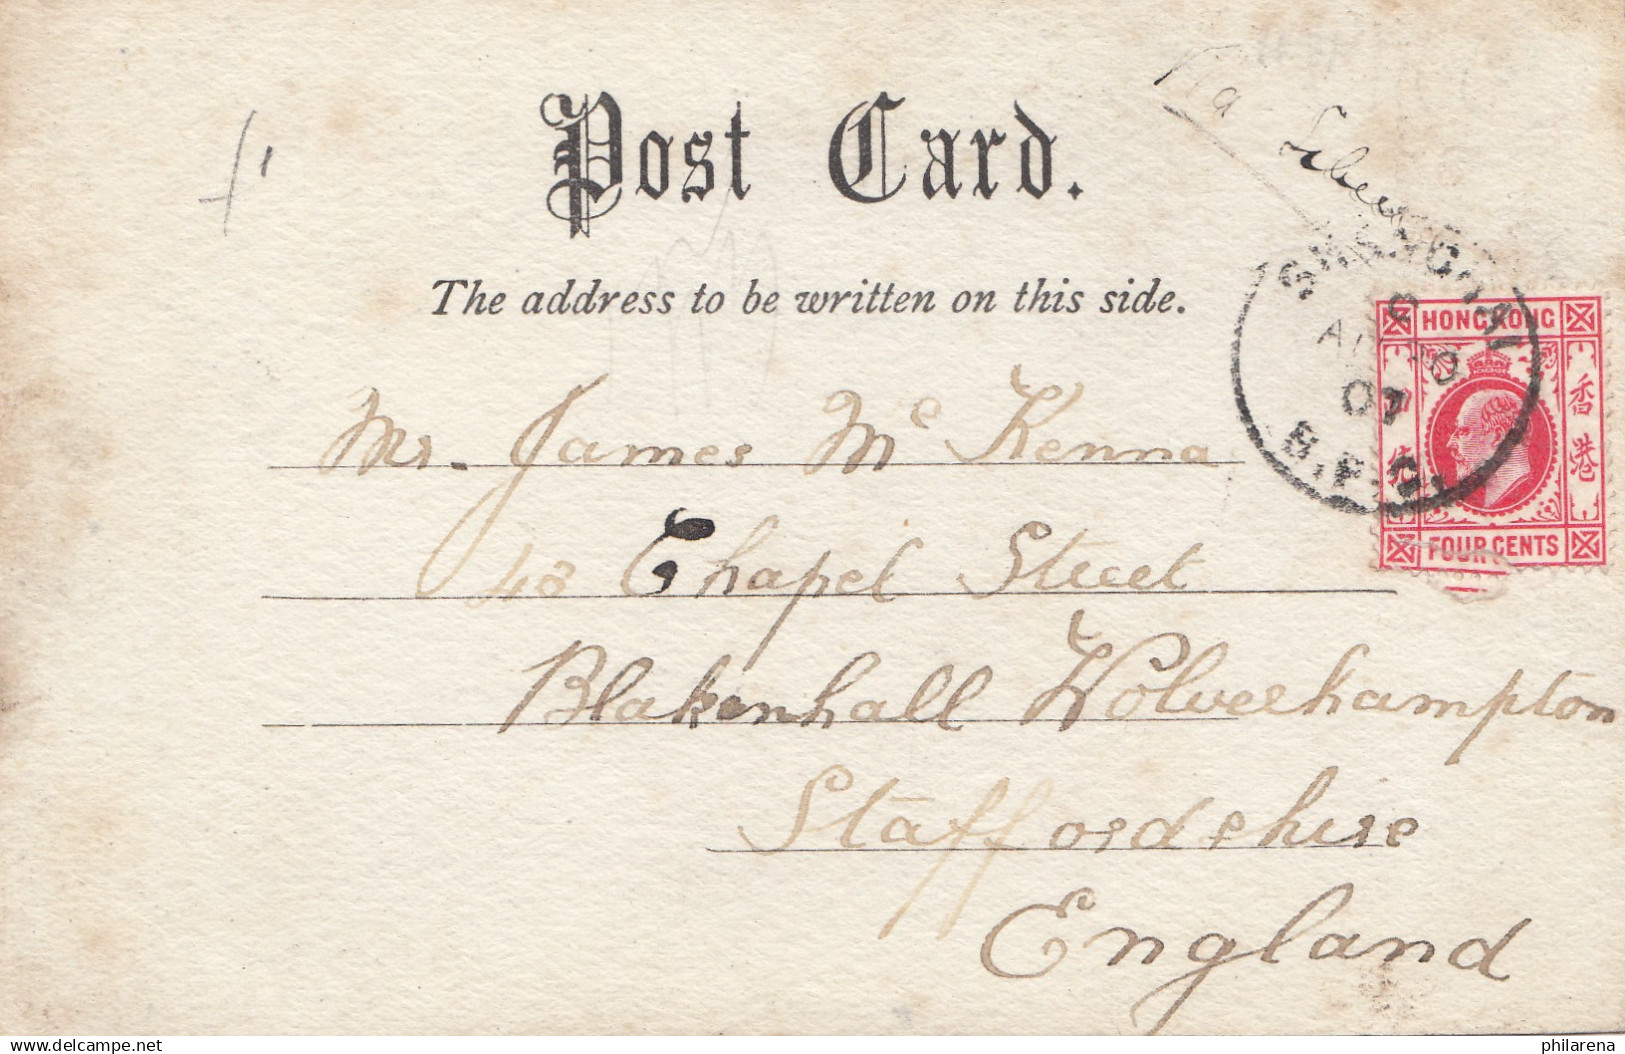 Post Card.
Via Siberia
The address to be written on this side.
SHANGHAI
C
07
B.P.O.
HONG KONG
香港
FOUR CENTS
Mr. James Mc Kenna
48 Chapel Street
Blakenhall Wolverhampton
Staffordshire
England
delcampe.net
philarena